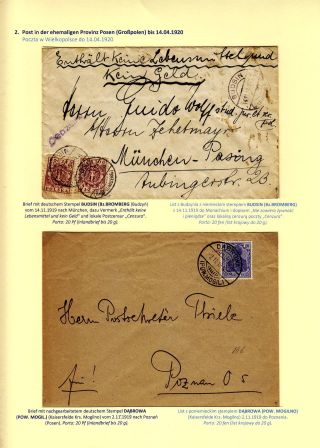 2. Post in der ehemaligen Provinz Posen (Großpolen) bis 14.04.1920
Poczta w Wielkopolsce do 14.04.1920
Enthält keine Lebensmittel und
Kein Geld.
BUDSIN
Herrn Guido Wolff stud.
Adresse Herrn Zehetmayr
München-Pasing
Aubingerstr. 23
Brief mit deutschem Stempel BUDSIN (Bz.BROMBERG) (Budzyń)
vom 14.11.1919 nach München, dazu Vermerk „Enthält keine
Lebensmittel und kein Geld" und lokale Postzensur „Censura".
Porto: 20 Pf (Inlandbrief bis 20 g).
List z Budzynia z niemieckim stemplem BUDSIN (Bz.BROMBERG)
z 14.11.1919 do Monachium i dopisem: „Nie zawiera żywności
i pieniędzy" oraz lokalną cenzurą poczty „Censura".
Porto: 20 fen (list krajowy do 20 g).
DABROWA
(POW. MOGIL.)
Herrn Postschreter Thiele
für!
Poznań O 5
Brief mit nachgearbeitetem deutschem Stempel DĄBROWA
(POW. MOGIL.) (Kaisersfelde Krs. Mogilno) vom 2.12.1919 nach Poznań
(Posen). Porto: 20 Pf (Inlandbrief bis 20 g).
List z poniemieckim stemplem DĄBROWA (POW. MOGILNO)
(Kaisersfelde Krs. Mogilno) z 2.12.1919 do Poznania.
Porto: 20 fen (list krajowy do 20 g).